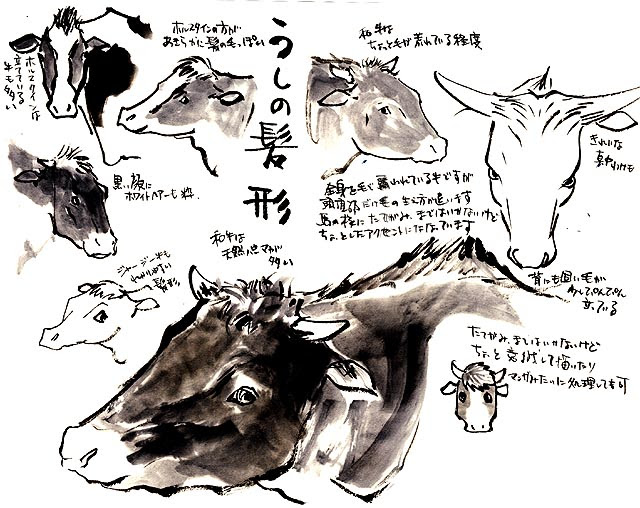 うしの髪形
ホルスタインの方が
あきらかに髪の毛っぽい
ホルスタインは
立てている
牛も多い
和牛は
ちょっと毛が荒れている程度
きれいな
黒い顔に
ホワイトヘアーも粋.
全身を毛で覆われている牛ですが
頭頂部だけ毛の生え方が違います
馬の様にたてがみ、まではいかないけど
ちょっとしたアクセントになっています
和牛は
天然パーマが
多い
ジャージー牛も
髪形.
背にも固い毛が
立っている
たてがみ、まではいかないけど
ちょっと
して描いたり
マンガみたいに処理しても可